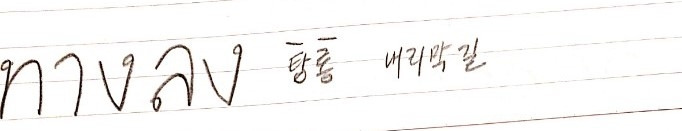 ทางลง 탕롱 내리막길